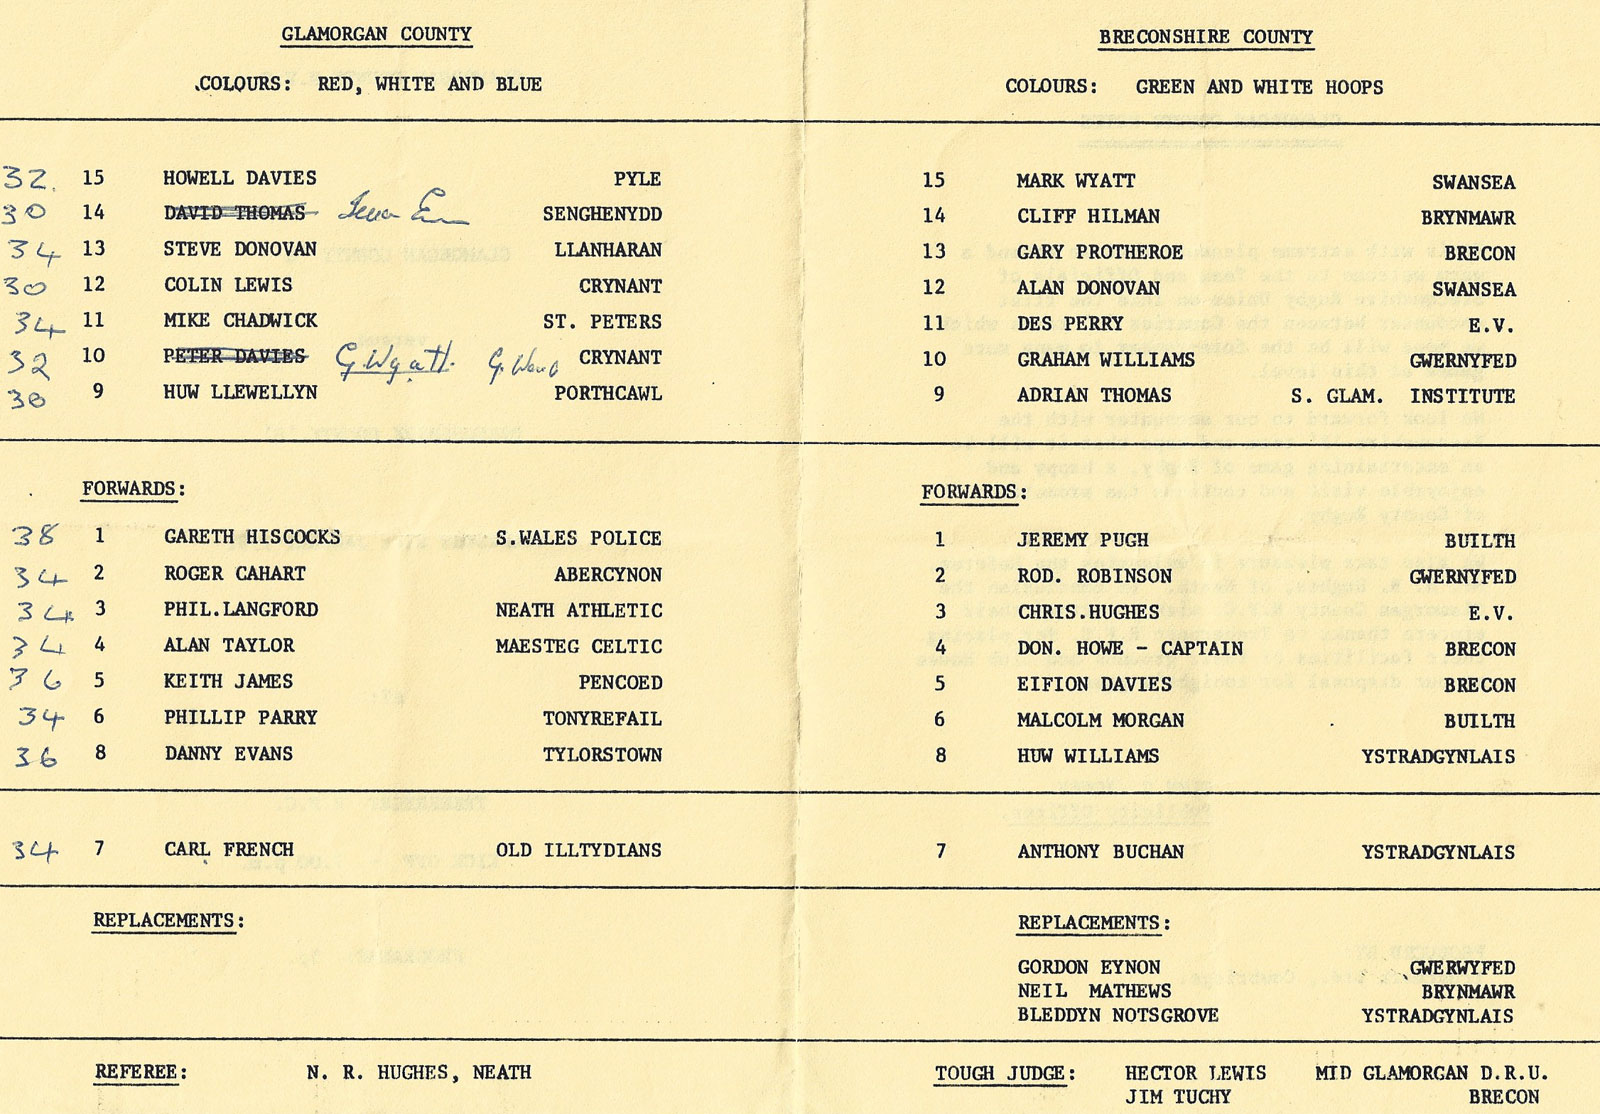 GLAMORGAN COUNTY
COLOURS: RED, WHITE AND BLUE
32. 15 HOWELL DAVIES PYLE
30 14 DAVID THOMAS SENGHENYDD
34 13 STEVE DONOVAN LLANHARAN
30 12 COLIN LEWIS CRYNANT
34 11 MIKE CHADWICK ST. PETERS
32 10 PETER DAVIES G. Wyatt. CRYNANT
30 9 HUW LLEWELLYN PORTHCAWL
FORWARDS:
38 1 GARETH HISCOCKS S.WALES POLICE
34 2 ROGER CAHART ABERCYNON
34 3 PHIL.LANGFORD NEATH ATHLETIC
34 4 ALAN TAYLOR MAESTEG CELTIC
36 5 KEITH JAMES PENCOED
34 6 PHILLIP PARRY TONYREFAIL
36 8 DANNY EVANS TYLORSTOWN
34 7 CARL FRENCH OLD ILLTYDIANS
REPLACEMENTS:
REFEREE: N. R. HUGHES, NEATH
BRECONSHIRE COUNTY
COLOURS: GREEN AND WHITE HOOPS
15 MARK WYATT SWANSEA
14 CLIFF HILMAN BRYNMAWR
13 GARY PROTHEROE BRECON
12 ALAN DONOVAN SWANSEA
11 DES PERRY E.V.
10 GRAHAM WILLIAMS GWERNYFED
9 ADRIAN THOMAS S. GLAM. INSTITUTE
FORWARDS:
1 JEREMY PUGH BUILTH
2 ROD. ROBINSON GWERNYFED
3 CHRIS.HUGHES E.V.
4 DON. HOWE - CAPTAIN BRECON
5 EIFION DAVIES BRECON
6 MALCOLM MORGAN BUILTH
8 HUW WILLIAMS YSTRADGYNLAIS
7 ANTHONY BUCHAN YSTRADGYNLAIS
REPLACEMENTS:
GORDON EYNON GWERWYFED
NEIL MATHEWS BRYNMAWR
BLEDDYN NOTSGROVE YSTRADGYNLAIS
TOUGH JUDGE: HECTOR LEWIS MID GLAMORGAN D.R.U.
JIM TUCHY BRECON